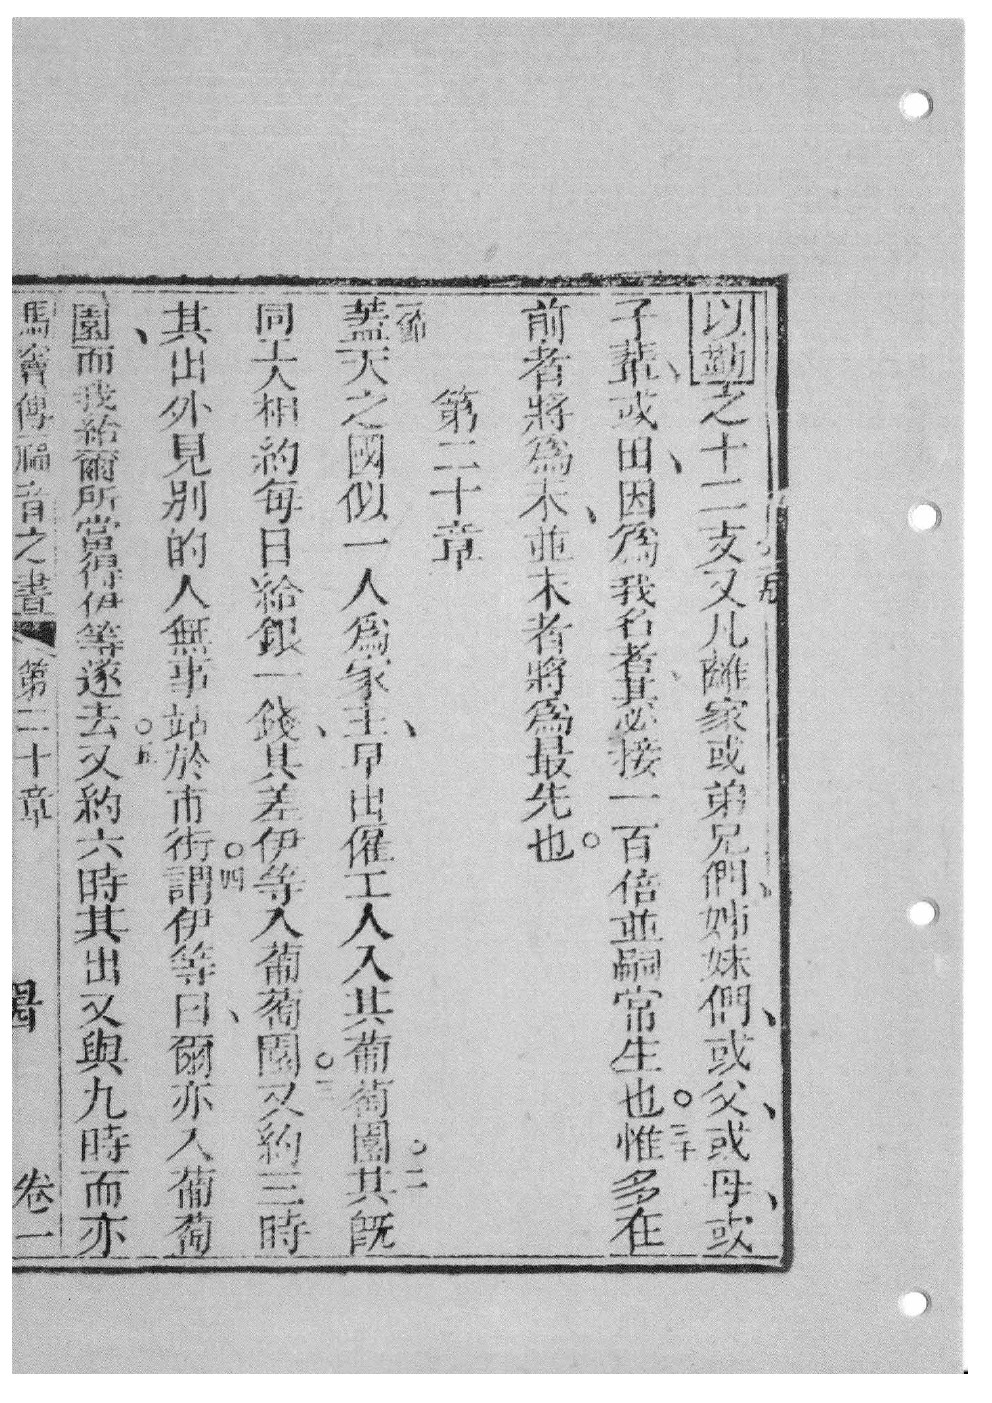 以勒之十二支又凡離家或弟兄們姊妹們或父或母或
子輩或田因為我名者其必接一百倍並嗣常生也○三十惟多在
前者將為末並末者將為最先也○
第二十章
一節蓋天之國似一人為家主早出催工人入其葡萄園○二其既
同工人相約每日給銀一錢其差伊等入葡萄園○三又約三時
其出外見別的人無事站於市街○四謂伊等曰爾亦入葡萄
園而我給爾所當得伊等遂去○五又約六時其出又與九時而亦
馬竇傳福音之書 第二十章 卷一